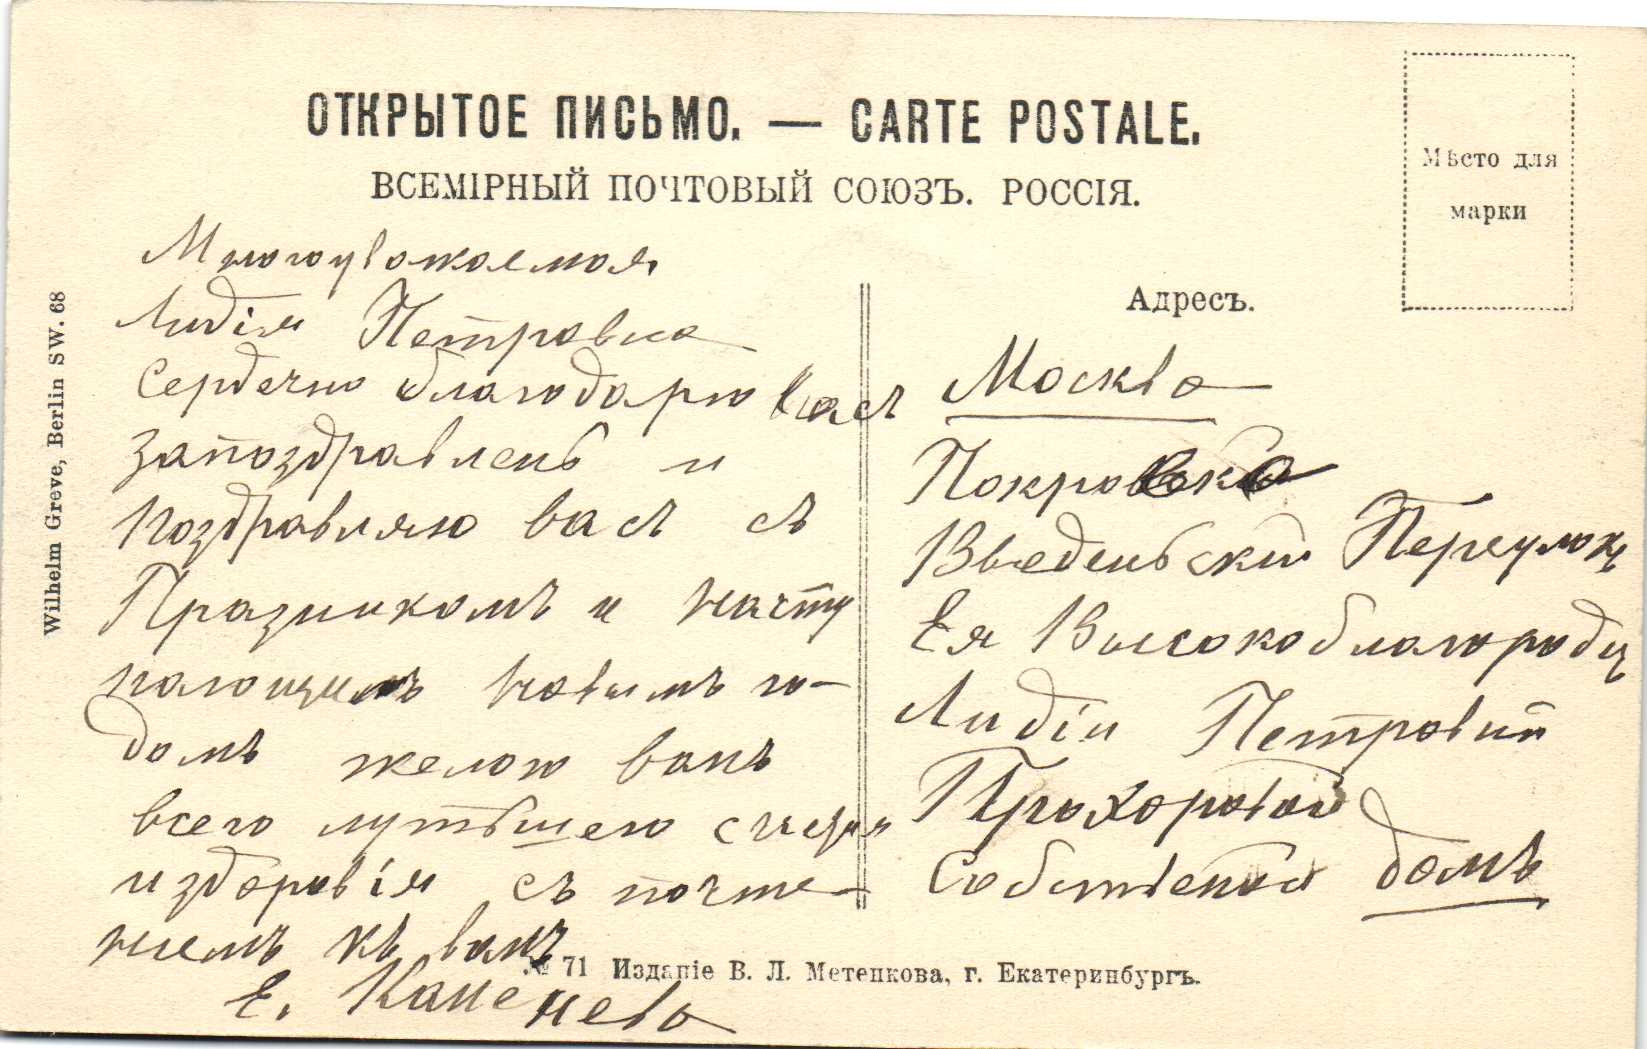 ОТКРЫТОЕ ПИСЬМО. — CARTE POSTALE.
ВСЕМІРНЫЙ ПОЧТОВЫЙ СОЮЗЪ. РОССІЯ.
Мѣсто для
марки
Wilhelm Greve, Berlin SW. 68
Многоуважаемая
Лидія Петровна
Сердечно благодарю васъ
запоздравлень и
поздравляю васъ съ
Празникомъ и насту
пающимъ новымъ го-
домъ желаю вамъ
всего лутьшего
издоровія съ почте-
ниемъ къ вамъ
Е.
Адресъ.
Москва
Покровка
Вьведеньский Переулокъ
Ея Высокоблагородіи
Лидіи Петровнй
Прохоровой
Собственой домъ
№ 71 Изданіе В. Л. Метенкова, г. Екатеринбургъ.